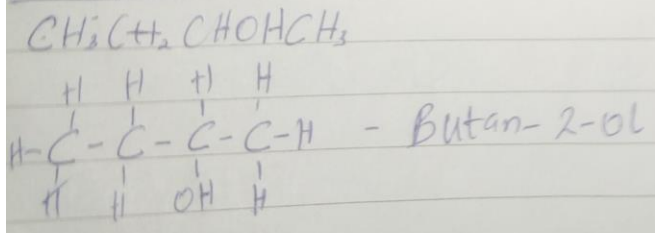 CH₃CH₂CHOHCH₃
H H H H
H-C-C-C-C-H - Butan-2-ol
H H OH H